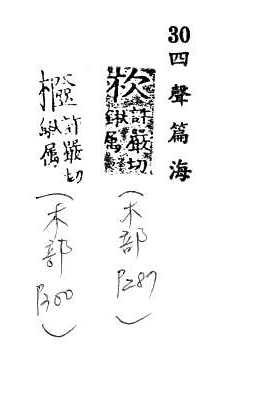 30 四聲篇海
杴 許嚴切
鍬属
(木部 P287)
許嚴切
鍬属
(木部 P300)